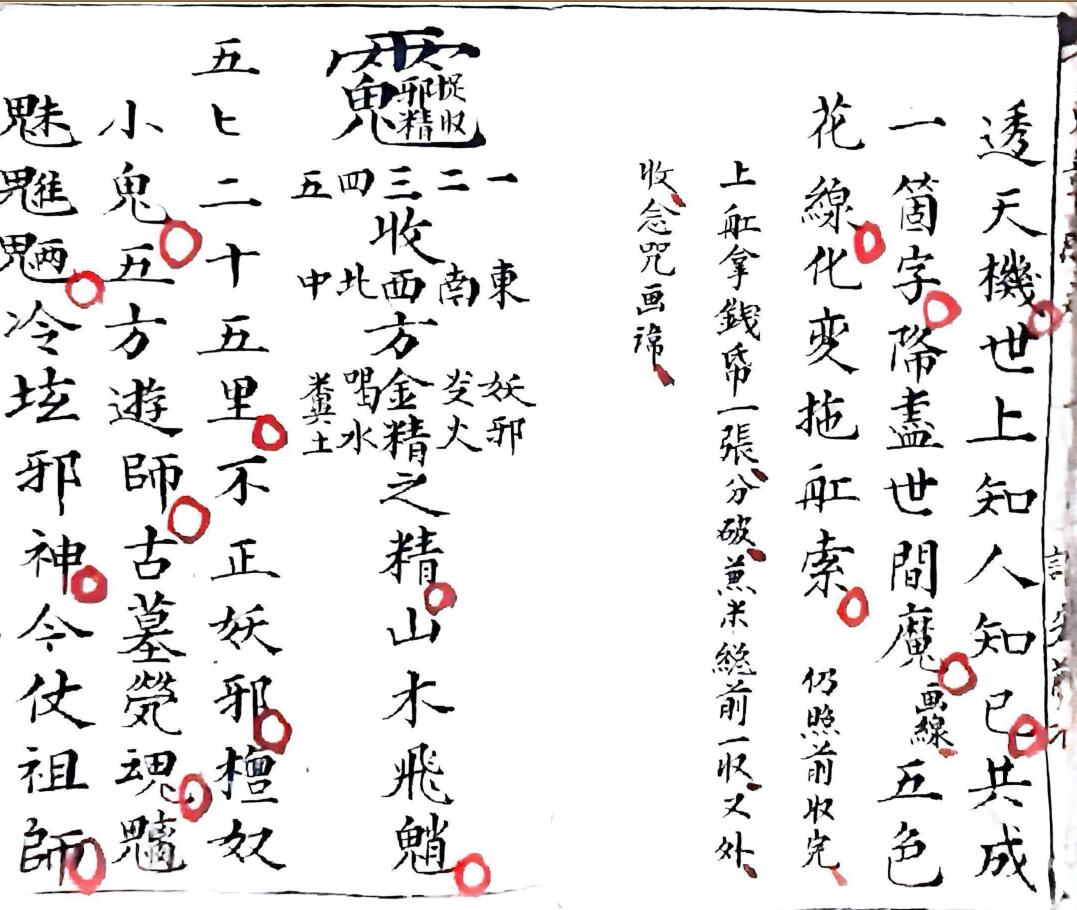 透天機世上知人知已共成
一箇字降盡世間魔画線五色
花線化变拖舡索 仍照前收完
上舡拿錢帋一張分破蒸米總前一收又外
收念咒画諱
捉收邪精鬼
一 東 妖邪
二 南 火
三收西方金精之精山木飛魈
四 北 喝水
五 中 糞土
五七二十五里不正妖邪檀奴
小鬼五方遊師古墓魂
魅魋魎冷坛邪神今仗祖師